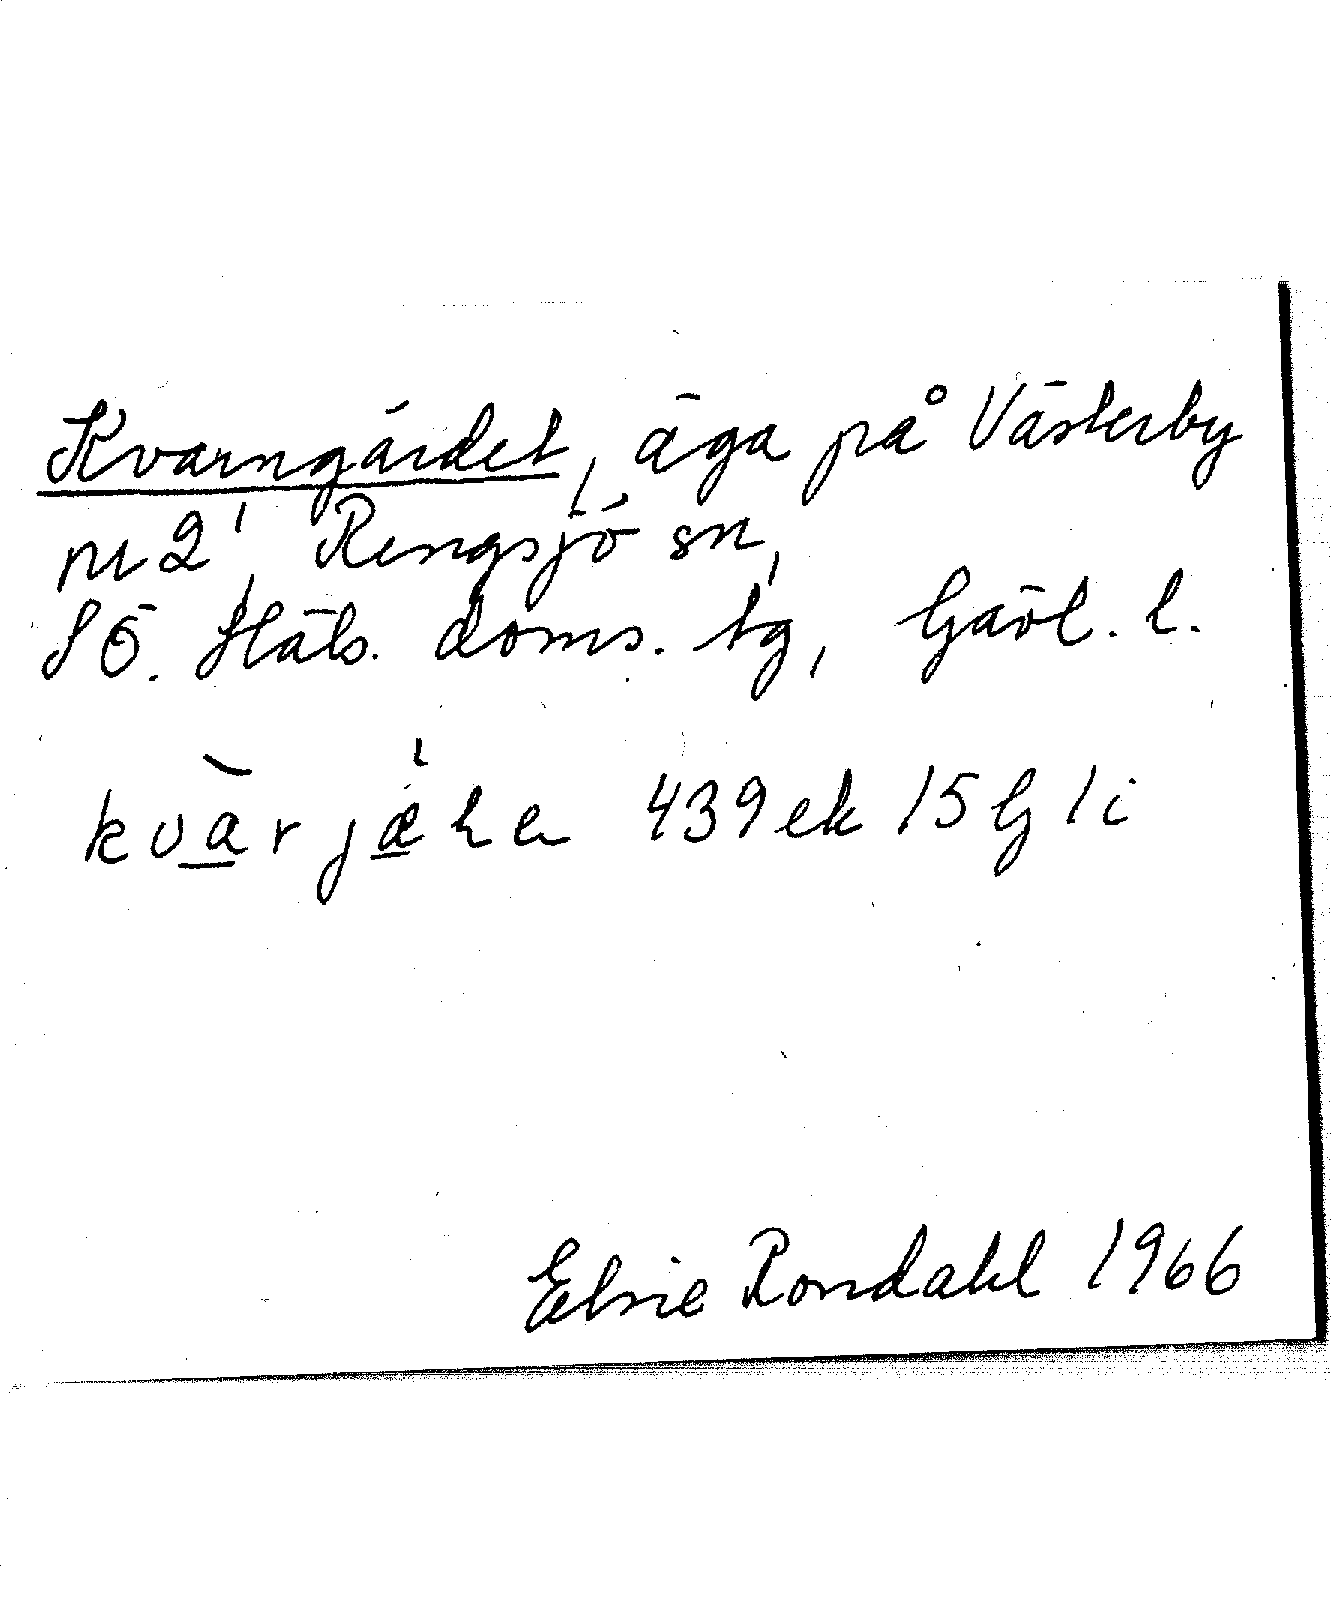 Kvarngärdet, äga på Västerby
nr 2, Rengsjö sn,
SÖ. Häls. doms. tg, Gävl. l.
439 ek 15 G 1 i
Elsie Rondahl 1966